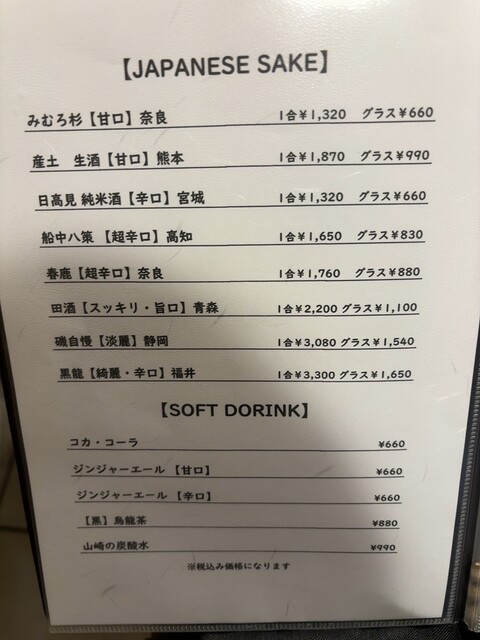 【JAPANESE SAKE】
みむろ杉【甘口】奈良 1合¥1,320 グラス¥660
産土 生酒【甘口】熊本 1合¥1,870 グラス¥990
日高見 純米酒【辛口】宮城 1合¥1,320 グラス¥660
船中八策 【超辛口】高知 1合¥1,650 グラス¥830
春鹿【超辛口】奈良 1合¥1,760 グラス¥880
田酒【スッキリ・旨口】青森 1合¥2,200 グラス¥1,100
磯自慢【淡麗】静岡 1合¥3,080 グラス¥1,540
黒龍【綺麗・辛口】福井 1合¥3,300 グラス¥1,650
【SOFT DORINK】
コカ・コーラ ¥660
ジンジャーエール 【甘口】 ¥660
ジンジャーエール 【辛口】 ¥660
【黒】烏龍茶 ¥880
山崎の炭酸水 ¥990
※税込み価格になります